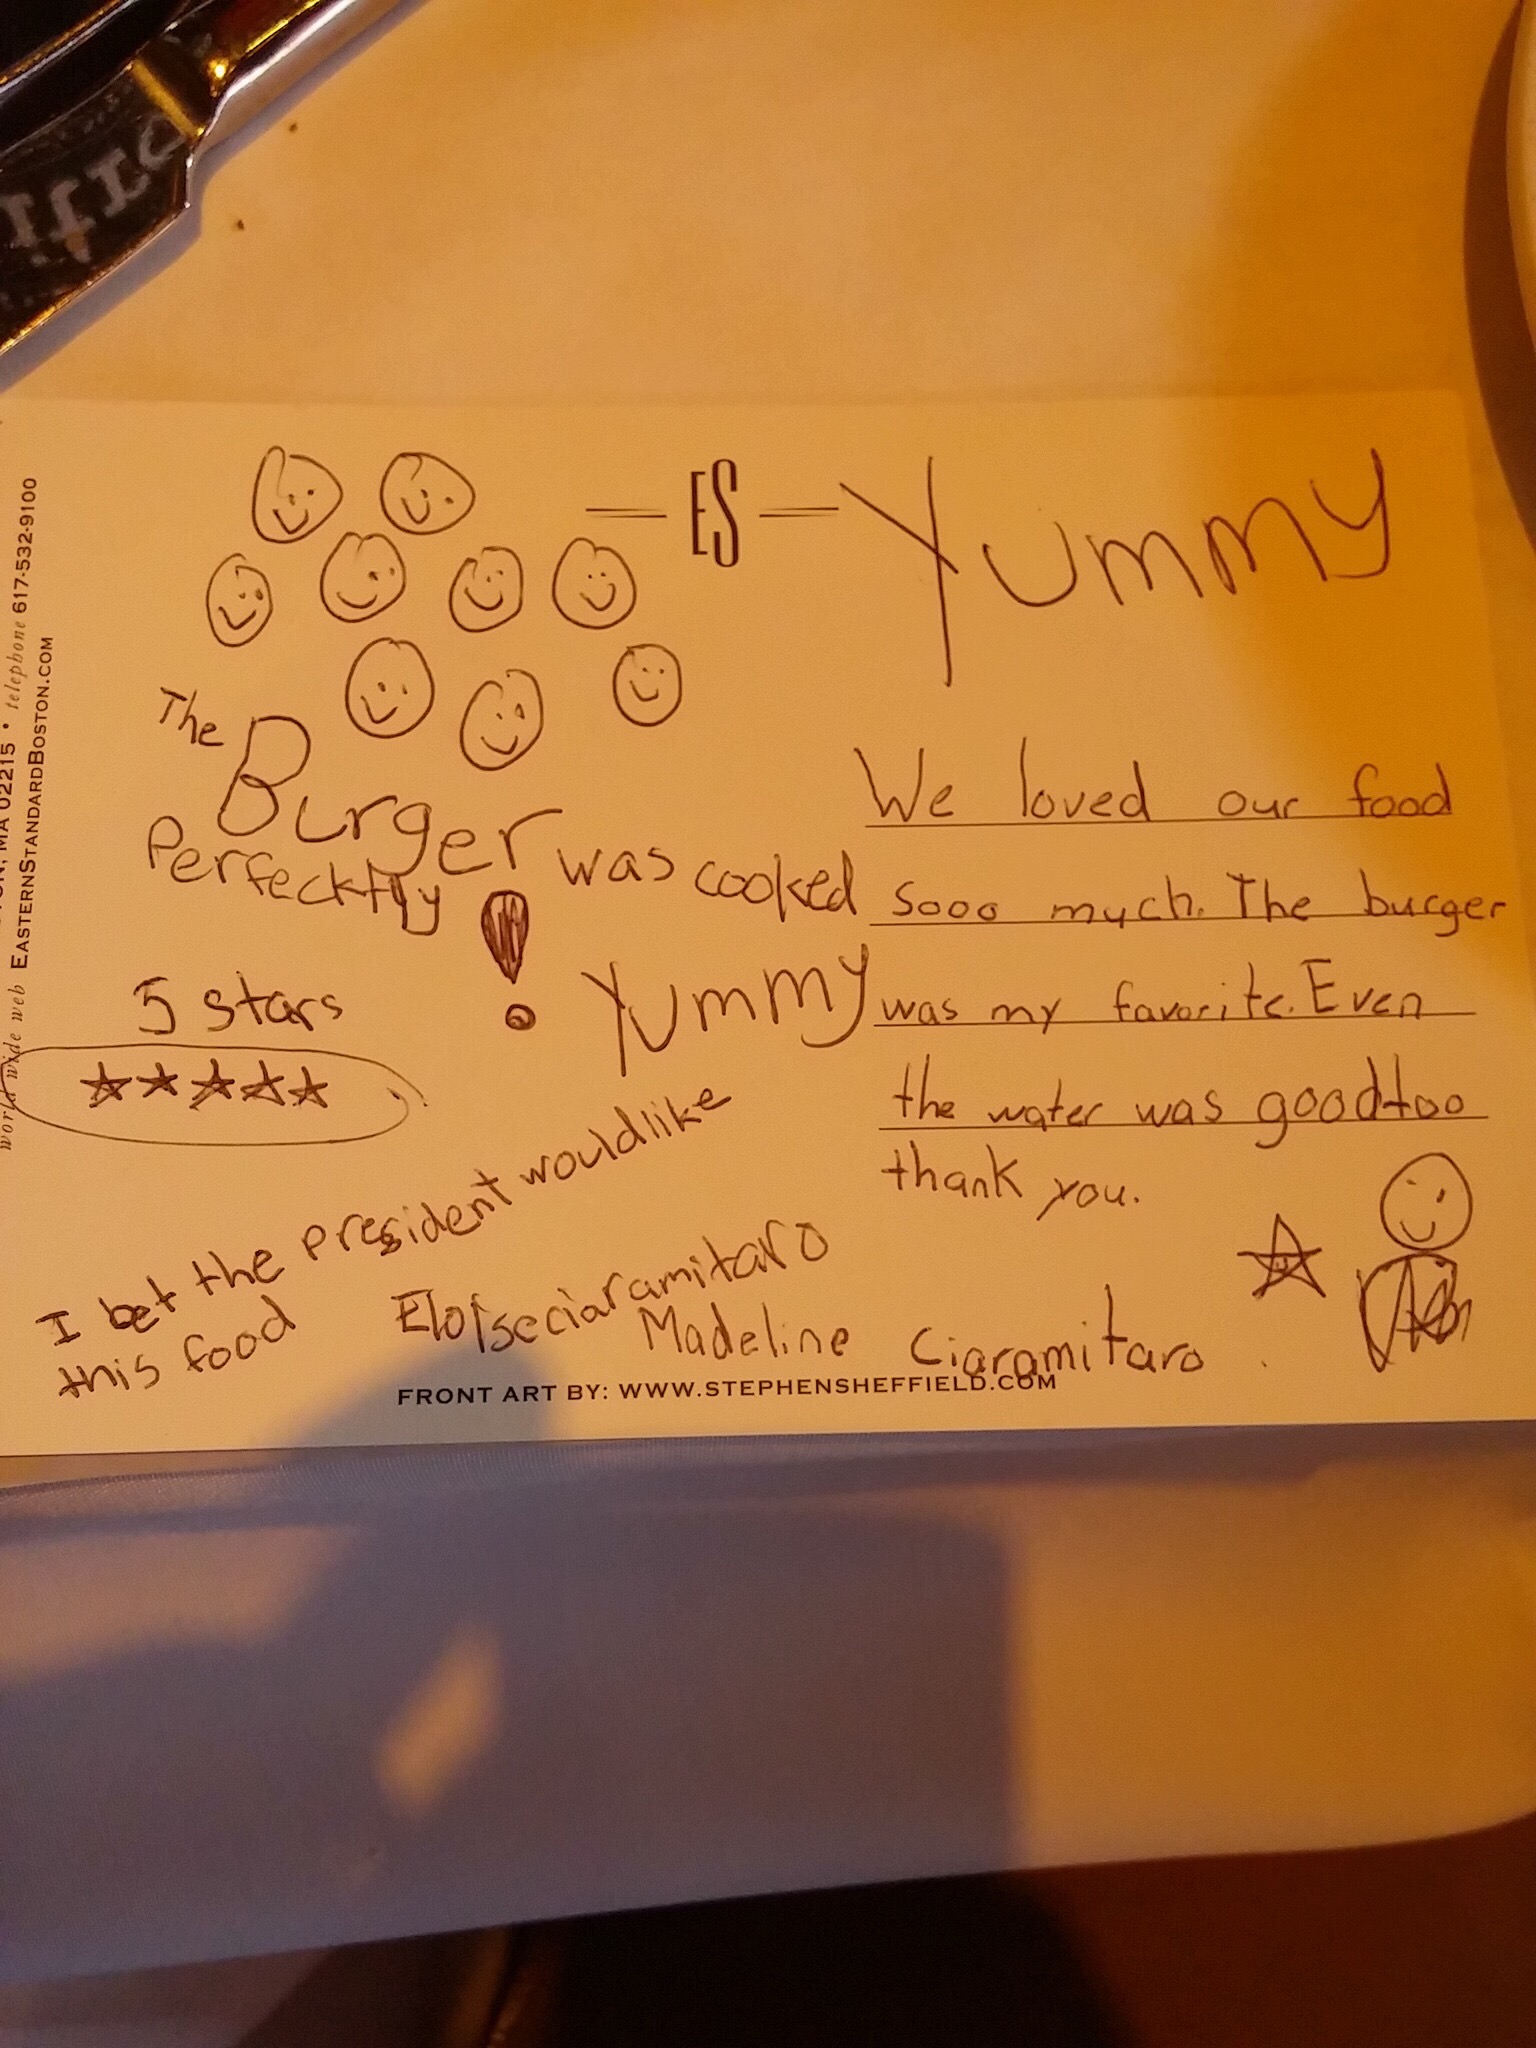 ES
Yummy
The
Burger was cooked
Perfecktly
!
Yummy
5 stars
I bet the president would like
this food
We loved our food
Sooo much. The burger
was my favorite. Even
the water was good too
thank you.
Eloise ciaramitaro
Madeline Ciaramitaro
FRONT ART BY: WWW.STEPHENSHEFFIELD.COM
MA 02215 • telephone 617-532-9100
world wide web EASTERNSTANDARDBOSTON.COM